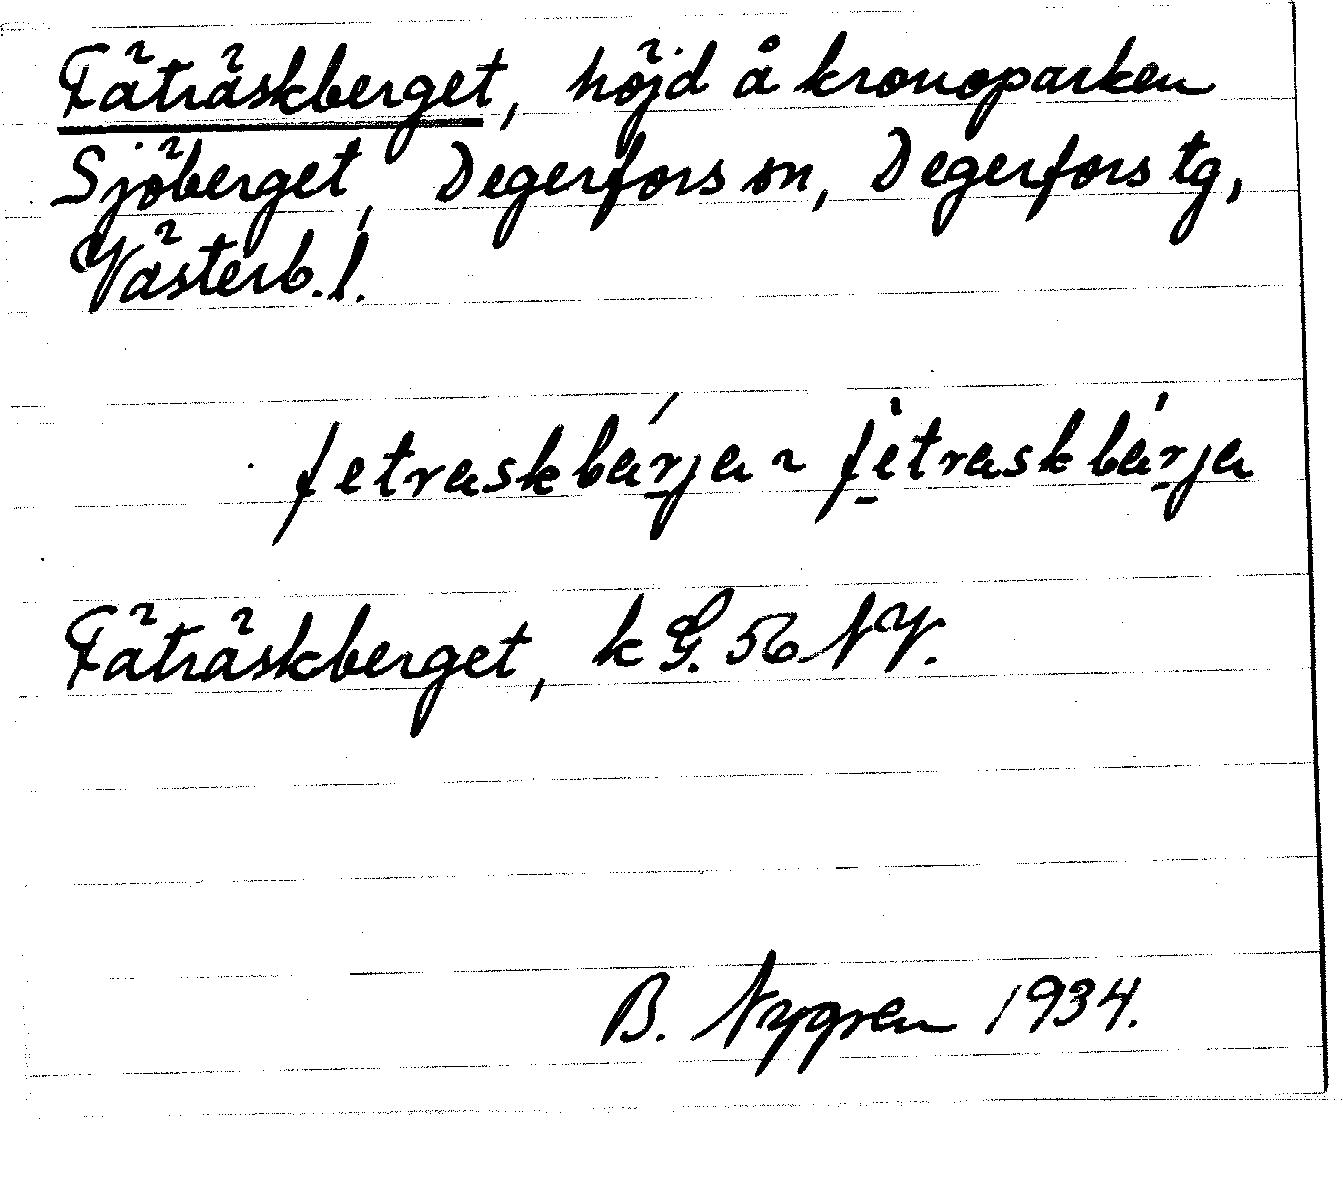 Fäträskberget, höjd å kronoparken
Sjöberget, Degerfors sn, Degerfors tg,
Västerb. l.
fetraskbárja ~ fetraskbárja
Fäträskberget, k G. 56 NV.
B. Nygren 1934.